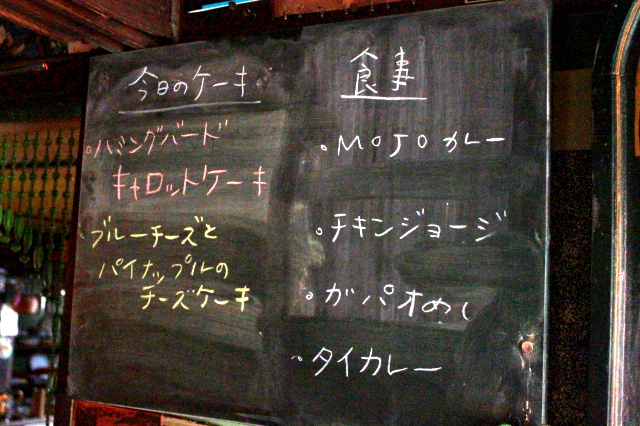 今日のケーキ
。ハミングバード
キャロットケーキ
。ブルーチーズと
パイナップルの
チーズケーキ
食事
。MOJOカレー
。チキンジョージ
。ガパオめし
。タイカレー